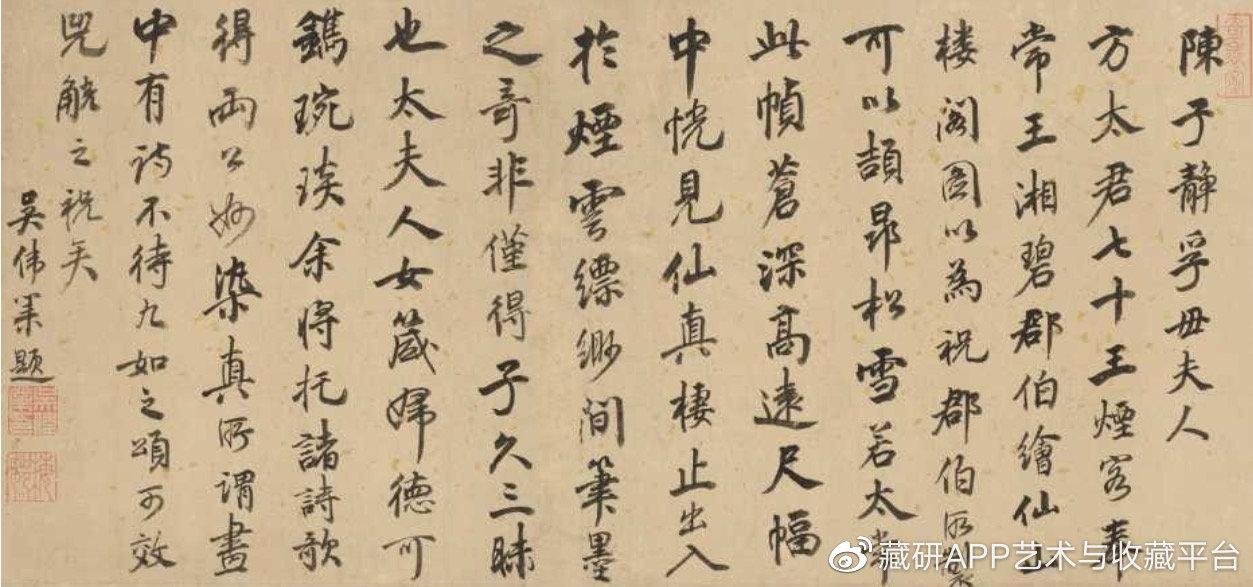 陳子靜孚母夫人
方太君七十王煙客奉
常王湘碧郡伯繪仙山
楼阁圖以為祝郡伯所製
可以頡昂松雪若太常
此幀蒼深高遠尺幅
中恍見仙真棲止出入
於煙雲縹缈间筆墨
之奇非僅得子久三昧
也太夫人女箴婦德可
鐫琬琰余将托諸詩歌
得两公妙染真所謂畫
中有诗不待九如之頌可效
兕觥之祝矣
吴伟業題
藏研APP艺术与收藏平台